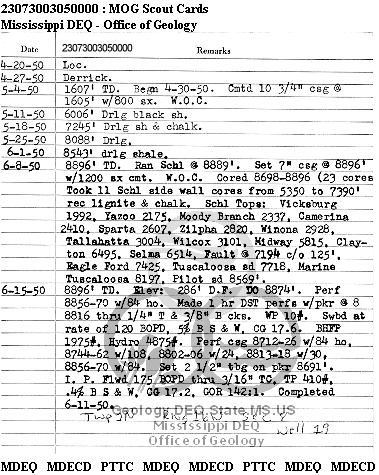 23073003050000 : MOG Scout Cards
Mississippi DEQ - Office of Geology
Date 23073003050000 Remarks
4-20-50 Loc.
4-27-50 Derrick.
5-4-50 1607' TD. Begn 4-30-50. Cmtd 10 3/4" csg @
1605' w/800 sx. W.O.C.
5-11-50 6006' Drlg black sh.
5-18-50 7245' Drlg sh & chalk.
5-25-50 8088' Drlg.
6-1-50 8543' drlg shale.
6-8-50 8896' TD. Ran Schl @ 8889'. Set 7" csg @ 8896'
w/1200 sx cmt. W.O.C. Cored 8698-8896 (23 cores
Took 11 Schl side wall cores from 5350 to 7390'
rec lignite & chalk. Schl Tops: Vicksburg
1992, Yazoo 2175, Moody Branch 2337, Camerina
2410, Sparta 2607, Zilpha 2820, Winona 2928,
Tallahatta 3004, Wilcox 3101, Midway 5815, Clay-
ton 6495, Selma 6514, Fault @ 7194 c/o 125',
Eagle Ford 7425, Tuscaloosa sd 7718, Marine
Tuscaloosa 8197, Pilot sd 8569'.
6-15-50 8896' TD. Elev: 286' D.F. DO 8874'. Perf
8856-70 w/84 ho. Made 1 hr DST perfs w/pkr @ 8
8816 thru 1/4" T & 3/8" B cks. WP 10#. Swbd at
rate of 120 BOPD, 5% B S & W, CG 17.6. BHFP
1975#, Hydro 4875#. Perf csg 8712-26 w/84 ho,
8744-62 w/108, 8802-06 w/24, 8813-18 w/30,
8856-70 w/84. Set 2 1/2" tbg on pkr 8691'.
I. P. Flwd 175 BOPD thru 3/16" TC, TP 410#,
.4% B S & W, CG 17.2, GOR 142:1. Completed
6-11-50.
Geology.DEQ.State.MS.US
Mississippi DEQ
Well 19
Office of Geology
MDEQ MDECD PTTC MDEQ MDECD PTTC MDEQ MDECD